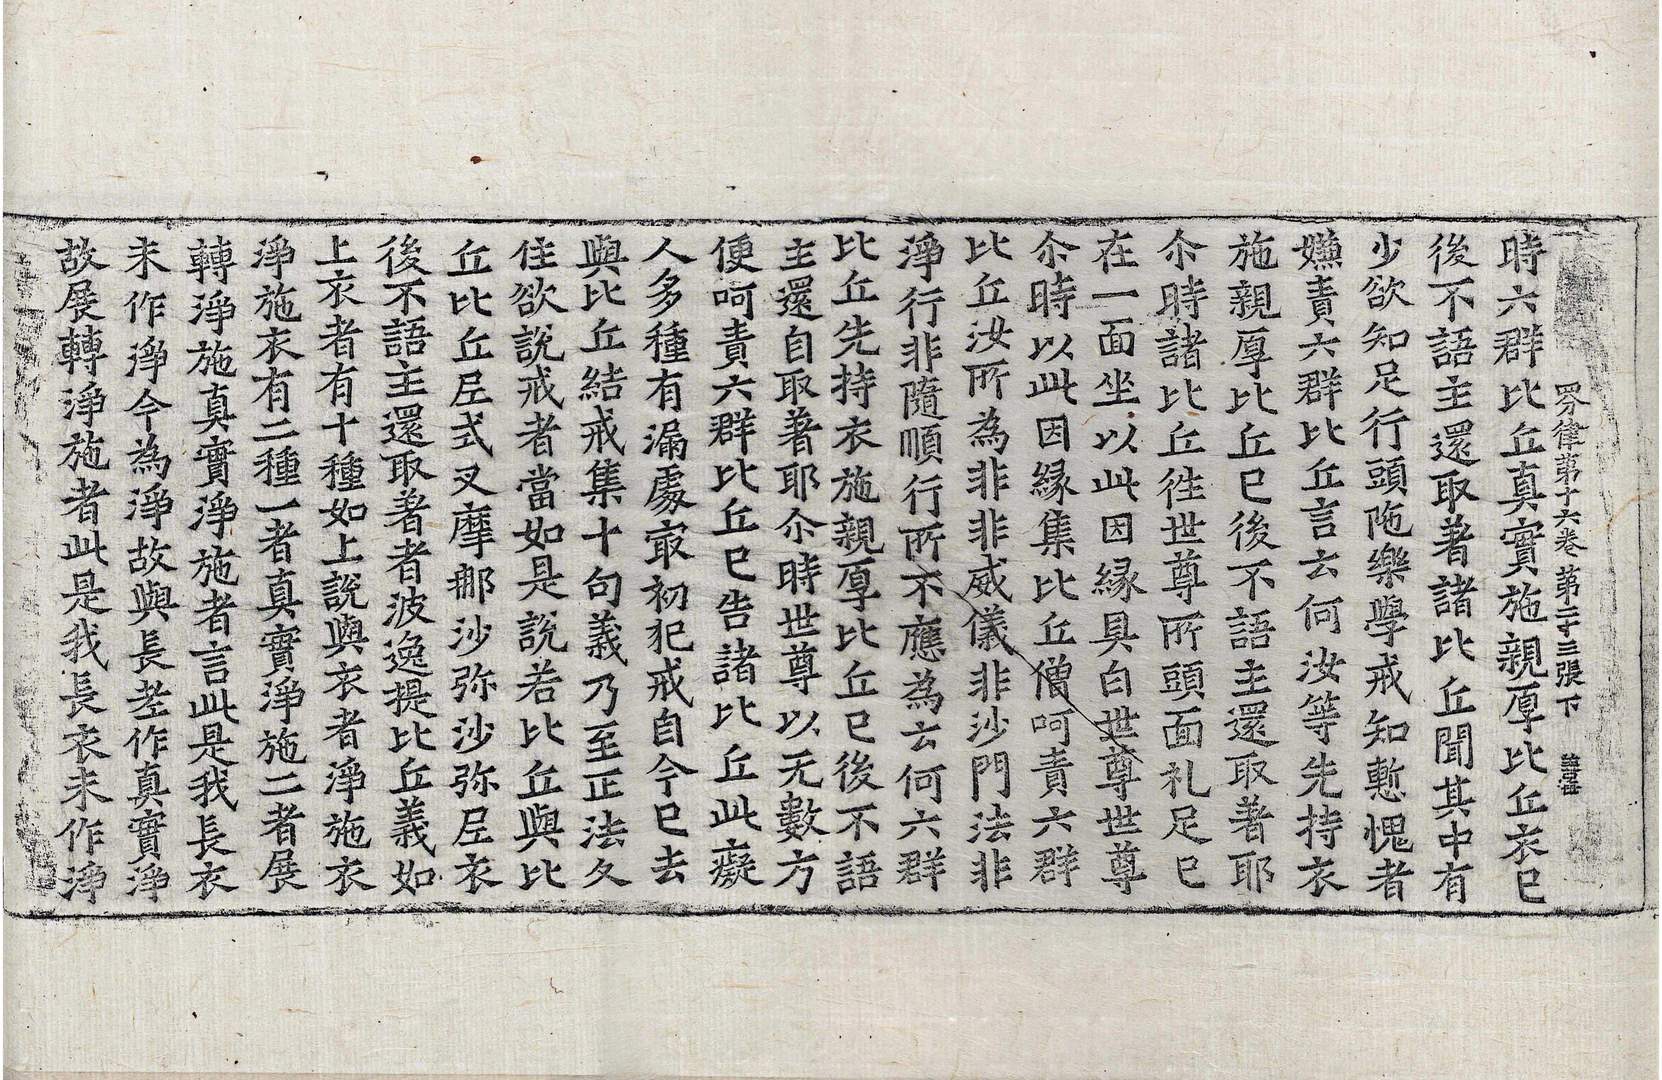 四分律第十六卷 第二十三張 下
時六群比丘真實施親厚比丘衣已
後不語主還取著諸比丘聞其中有
少欲知足行頭陁樂學戒知慙愧者
嫌責六群比丘言云何汝等先持衣
施親厚比丘已後不語主還取著耶
尒時諸比丘往世尊所頭面礼足已
在一面坐以此因緣具白世尊世尊
尒時以此因緣集比丘僧呵責六群
比丘汝所為非非威儀非沙門法非
淨行非隨順行所不應為云何六群
比丘先持衣施親厚比丘已後不語
主還自取著耶尒時世尊以无數方
便呵責六群比丘已告諸比丘此癡
人多種有漏處㝡初犯戒自今已去
與比丘結戒集十句義乃至正法久
住欲說戒者當如是說若比丘與比
丘比丘尼式叉摩那沙弥沙弥尼衣
後不語主還取著者波逸提比丘義如
上衣者有十種如上說與衣者淨施衣
淨施衣有二種一者真實淨施二者展
轉淨施真實淨施者言此是我長衣
未作淨今為淨故與長老作真實淨
故展轉淨施者此是我長衣未作淨